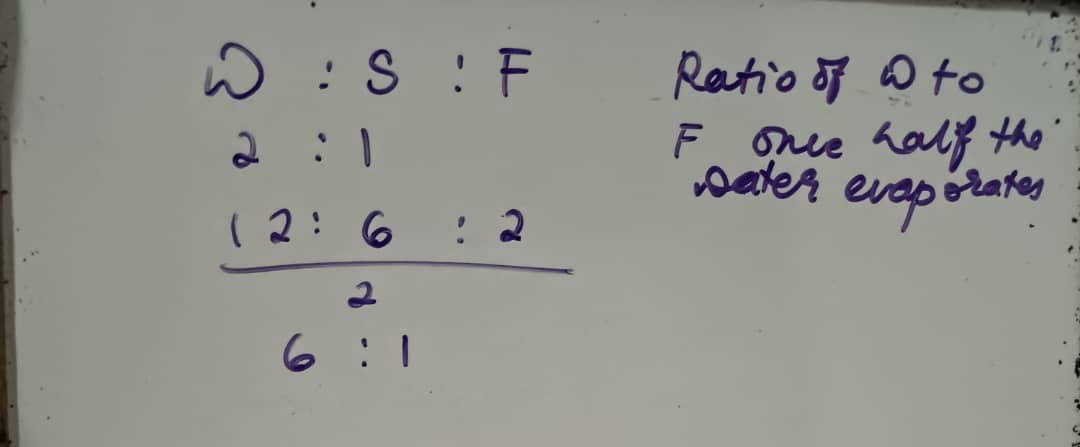 W : S : F
2 : 1
12 : 6 : 2
2
6 : 1
Ratio of W to
F once half the
water evaporates